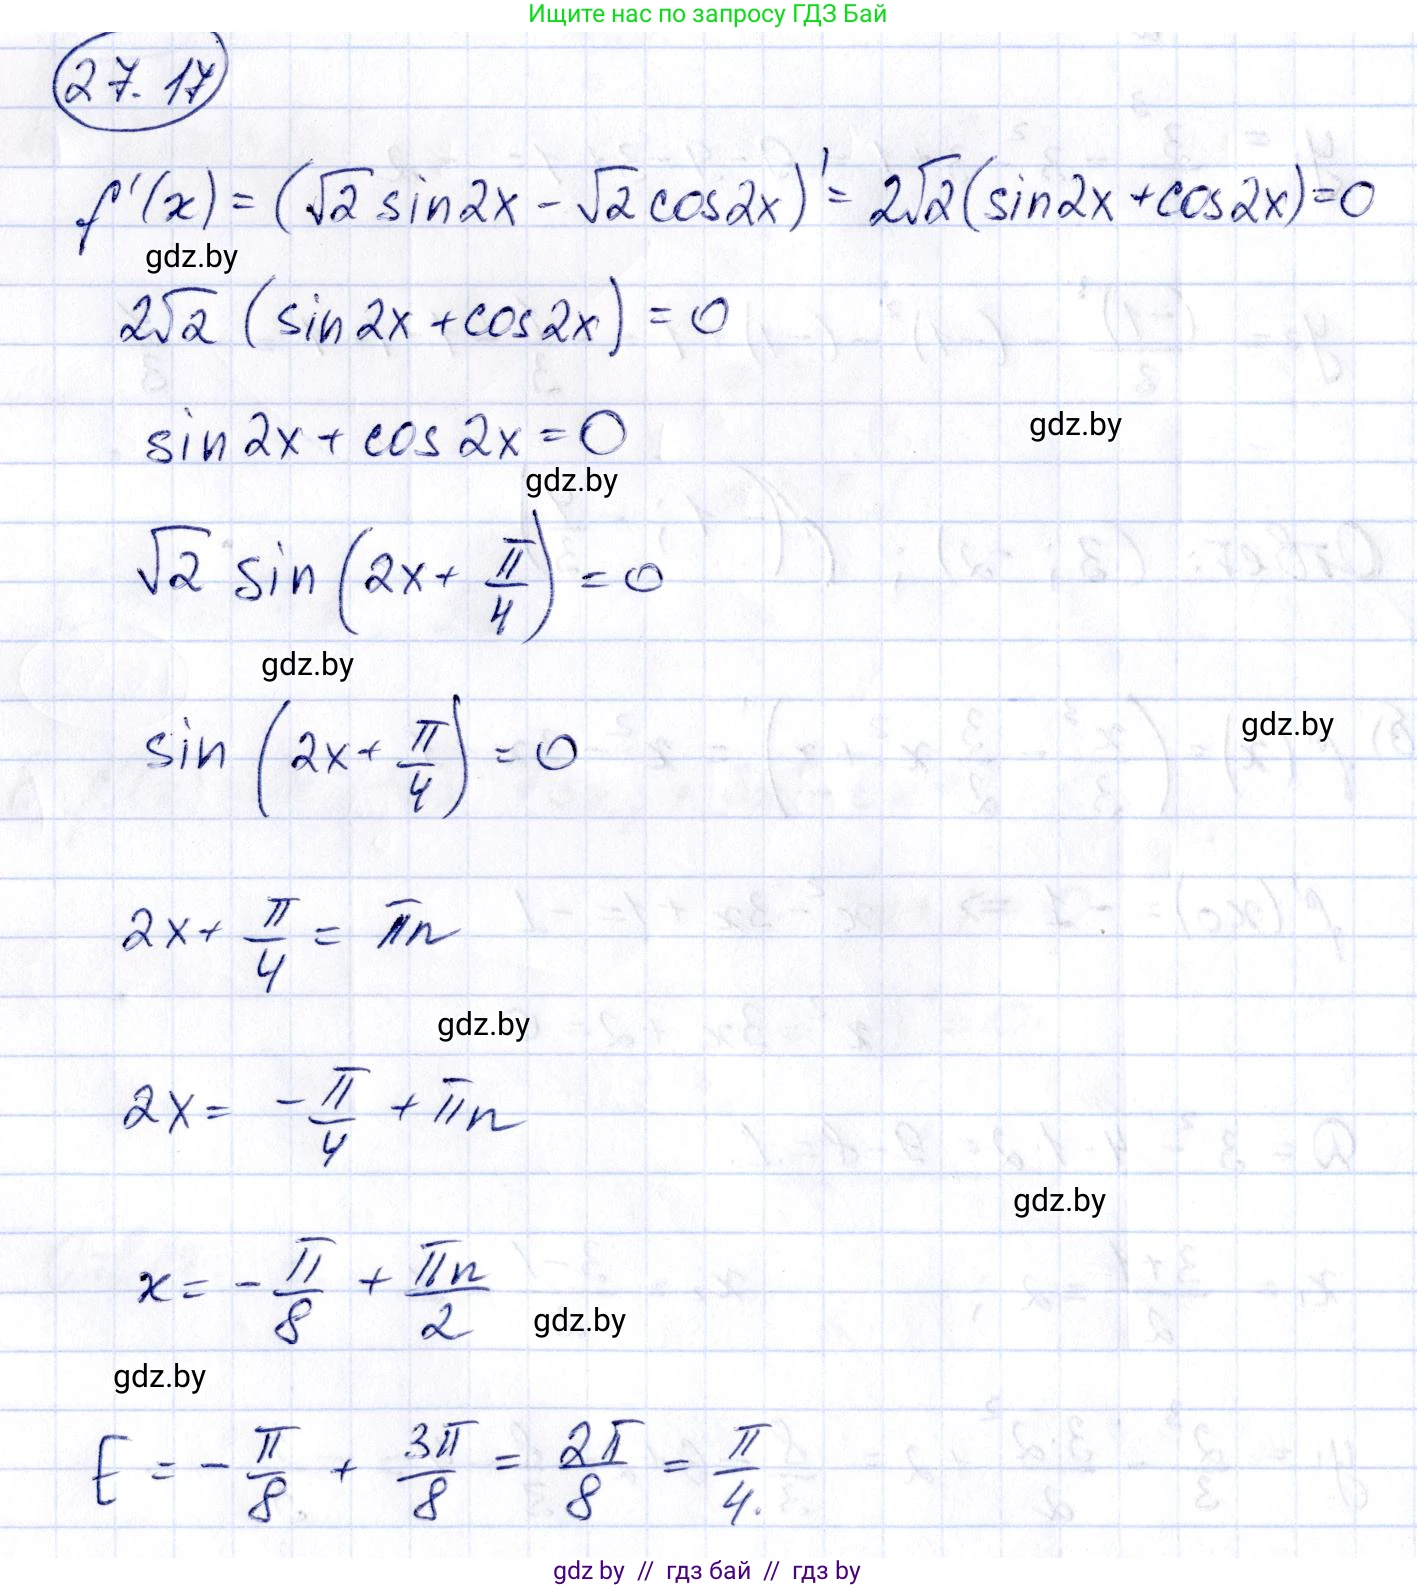 Ищите нас по запросу ГДЗ Бай
27.17
f'(x) = (√2 sin2x − √2 cos2x)' = 2√2(sin2x + cos2x) = 0
gdz.by
2√2 (sin2x + cos2x) = 0
sin2x + cos2x = 0
gdz.by
gdz.by
√2 sin(2x + π/4) = 0
gdz.by
sin(2x + π/4) = 0
gdz.by
2x + π/4 = πn
gdz.by
2x = −π/4 + πn
gdz.by
x = −π/8 + πn/2
gdz.by
gdz.by
Σ = −π/8 + 3π/8 = 2π/8 = π/4.
gdz.by // гдз бай // гдз by